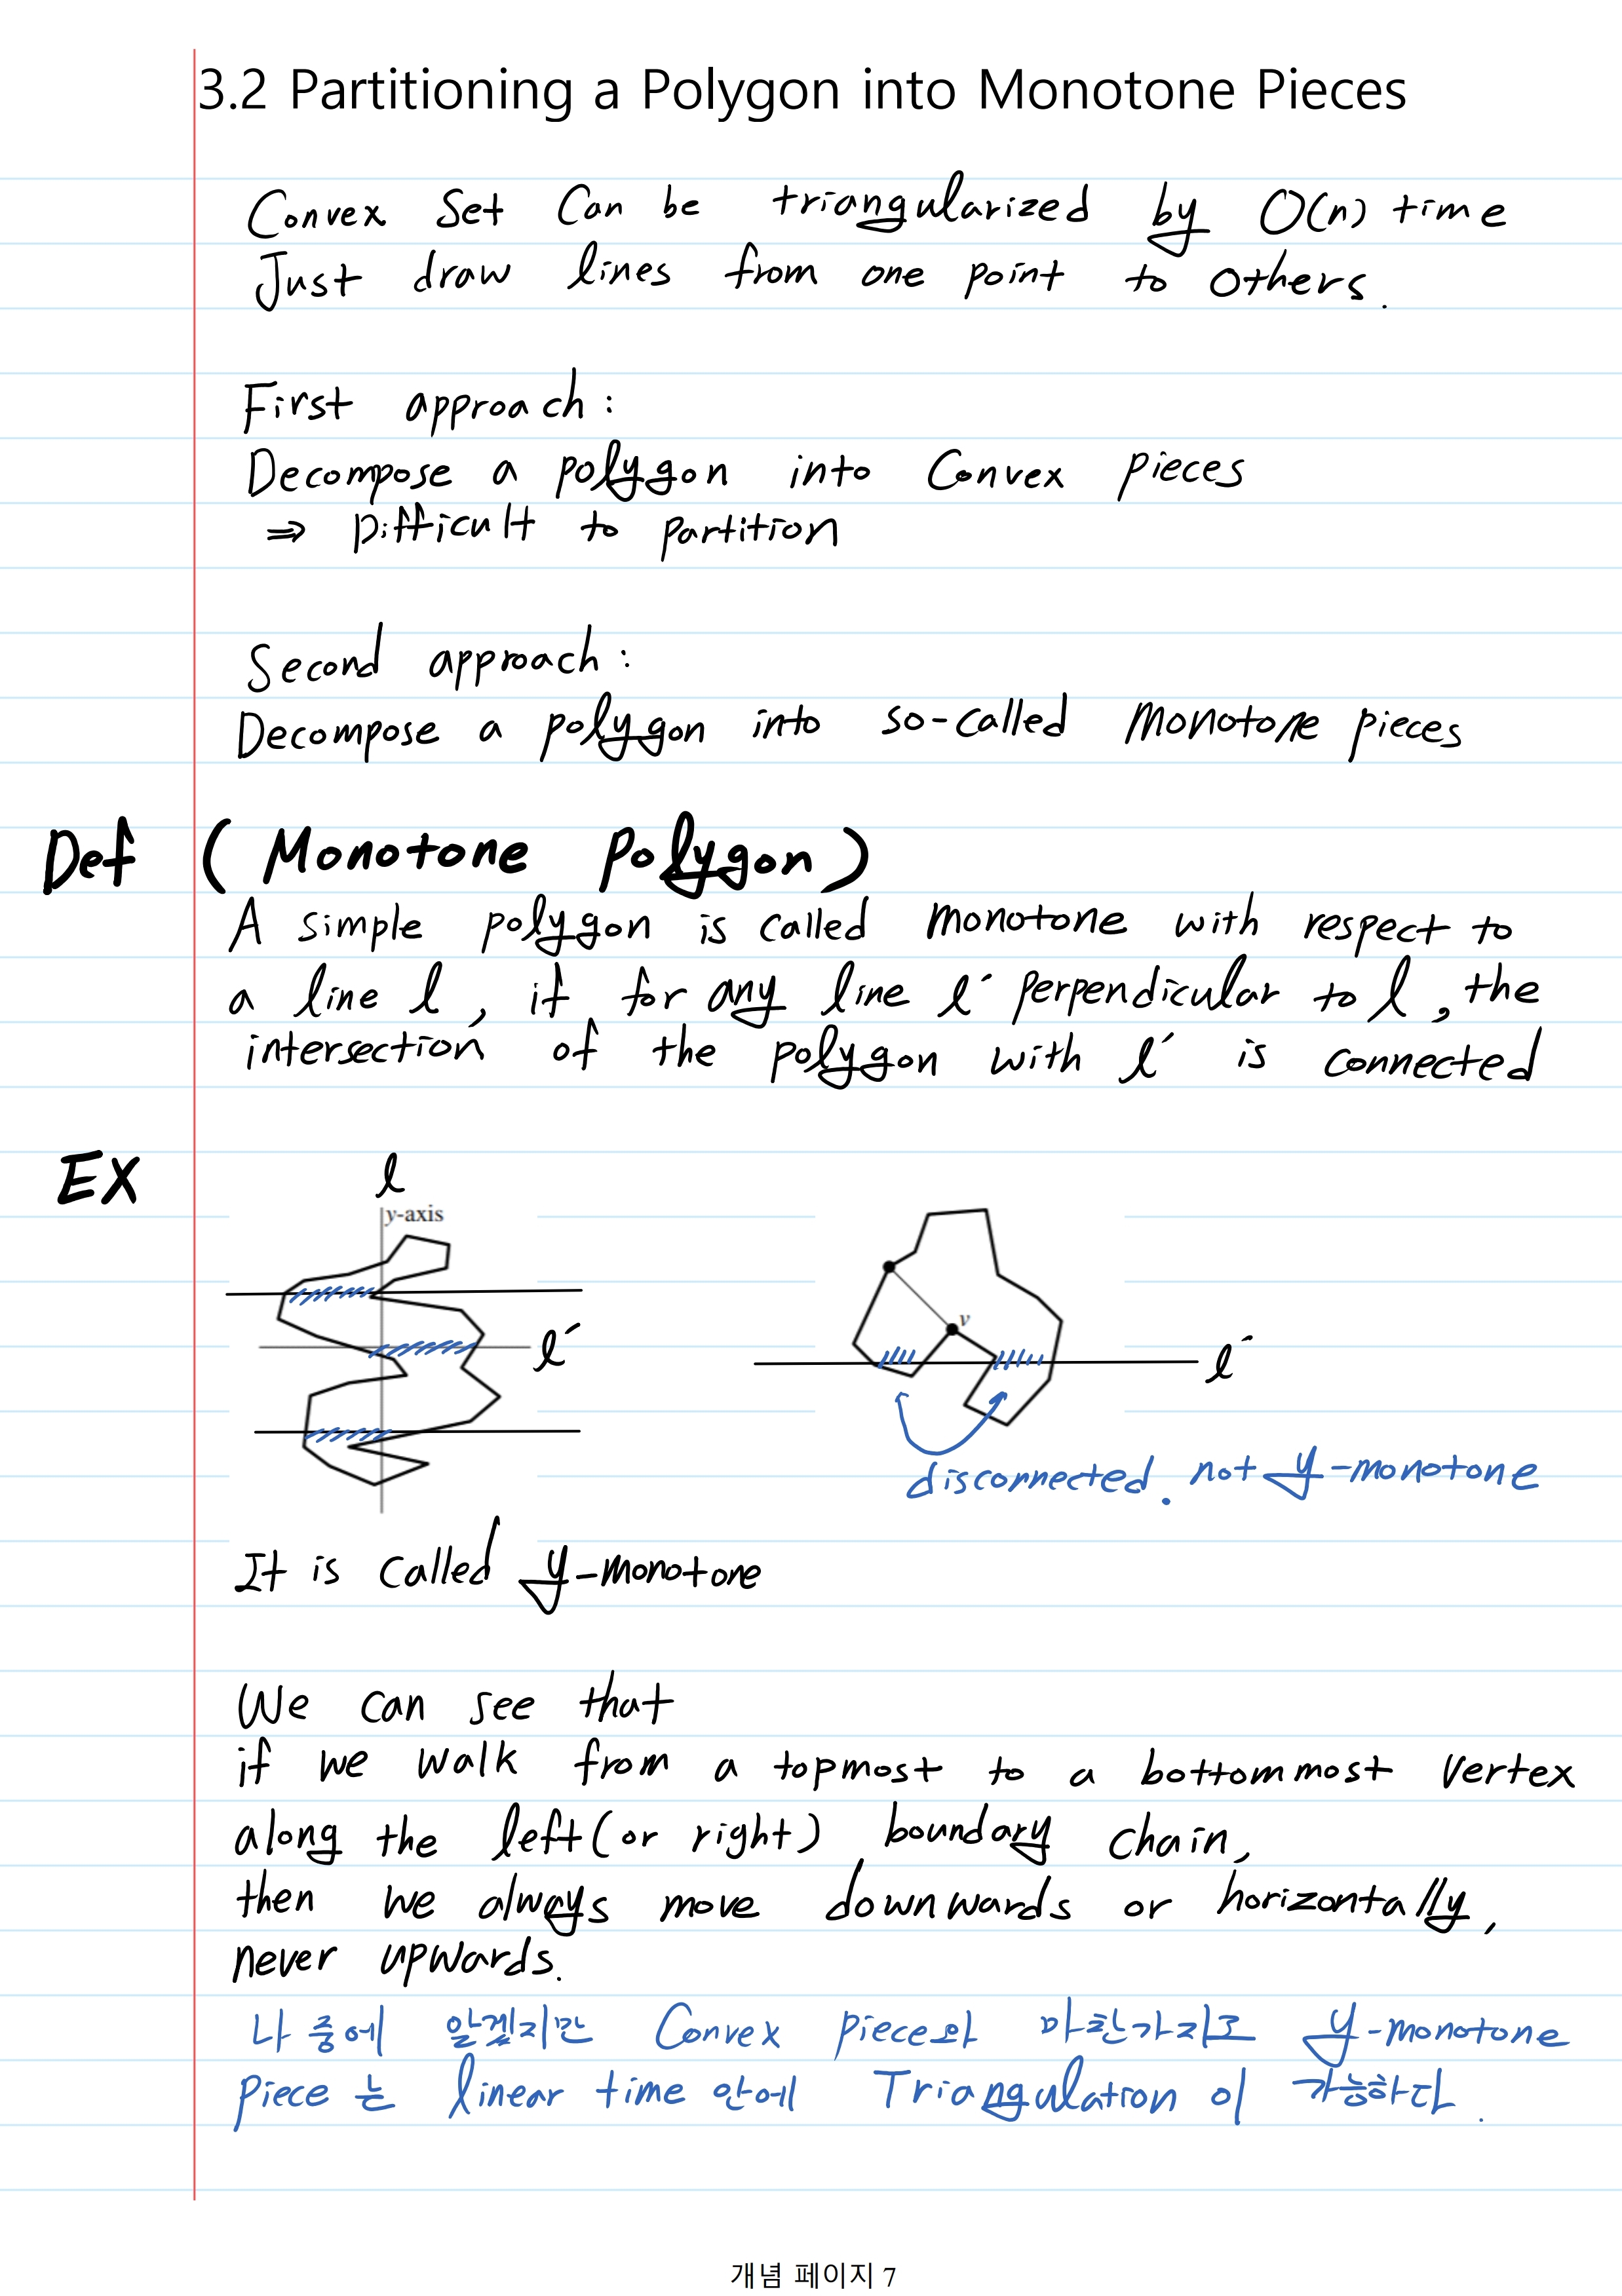 3.2 Partitioning a Polygon into Monotone Pieces
Convex Set Can be triangularized by O(n) time
Just draw lines from one point to others.
First approach:
Decompose a polygon into Convex pieces
⇒ Difficult to partition
Second approach:
Decompose a polygon into so-called monotone pieces
Def (Monotone Polygon)
A simple polygon is called monotone with respect to
a line l, if for any line l' perpendicular to l, the
intersection of the polygon with l' is connected
EX
l
y-axis
v
l'
l'
disconnected. not y-monotone
It is called y-monotone
We can see that
if we walk from a topmost to a bottommost vertex
along the left(or right) boundary chain,
then we always move downwards or horizontally,
never upwards.
나중에 알겠지만 Convex piece와 마찬가지로 y-monotone
piece는 linear time 안에 Triangulation이 가능하다.
개념 페이지 7